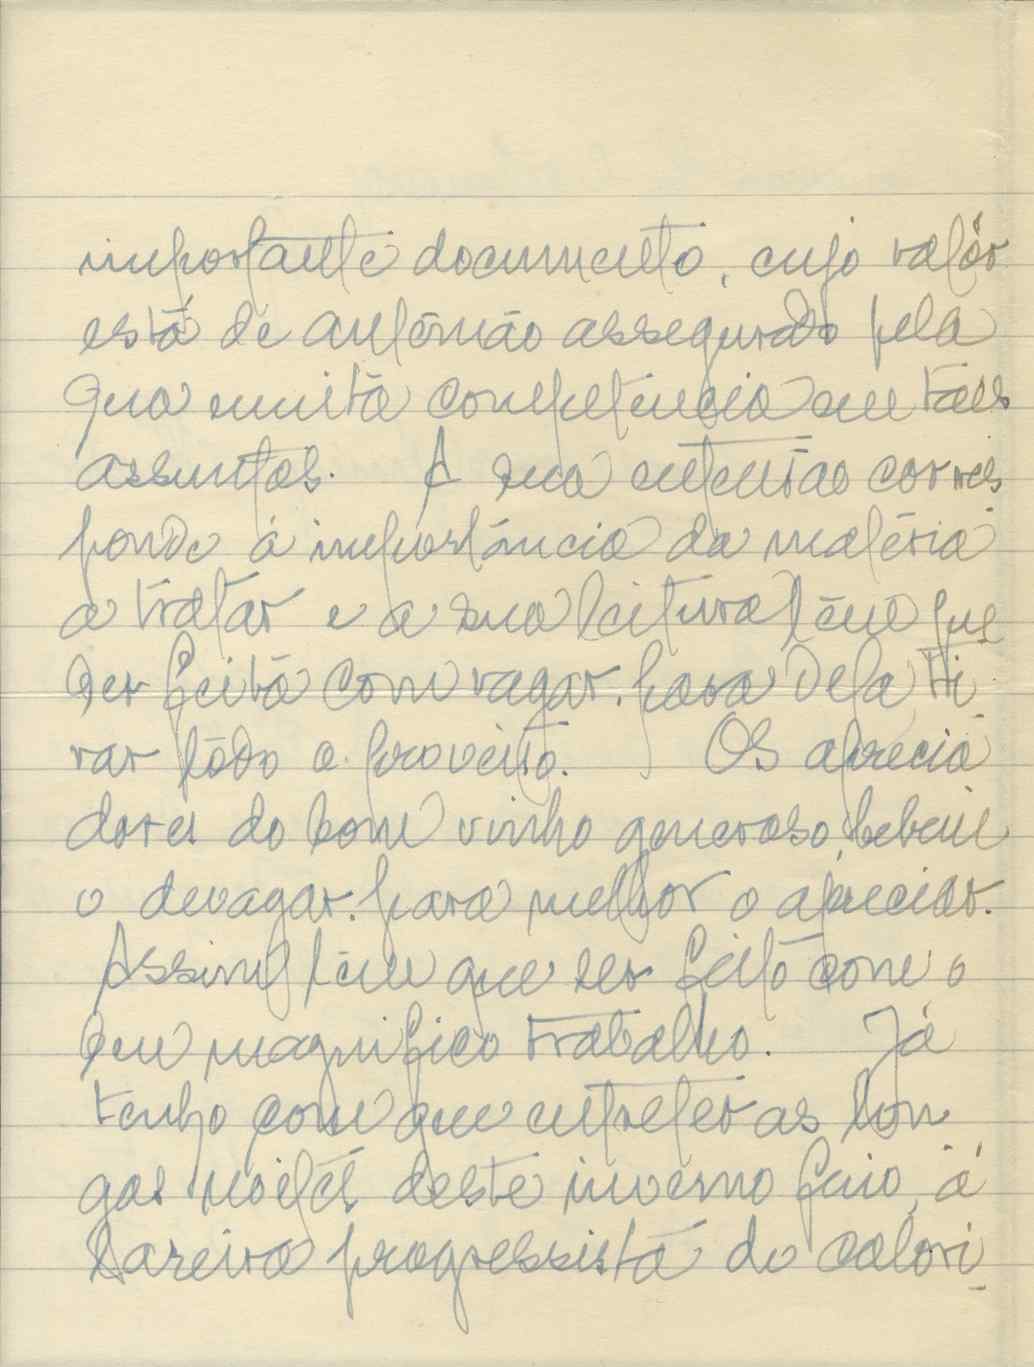 importante documento, cujo valôr
está de antemão assegurado pela
sua muita competencia em taes
assuntos. A sua extensão corres
ponde á importância da matéria
a tratar e a sua leitura têm que
ser feita com vagar. para dela ti
rar tôdo o proveito. Os aprecia
dores do bom vinho generoso, bebem
o devagar. para melhor o apreciar.
Assim têm que ser feito com o
seu magnifico trabalho. Já
tenho com que entreter as lon
gas noites deste inverno feio, á
lareira progressista do calori